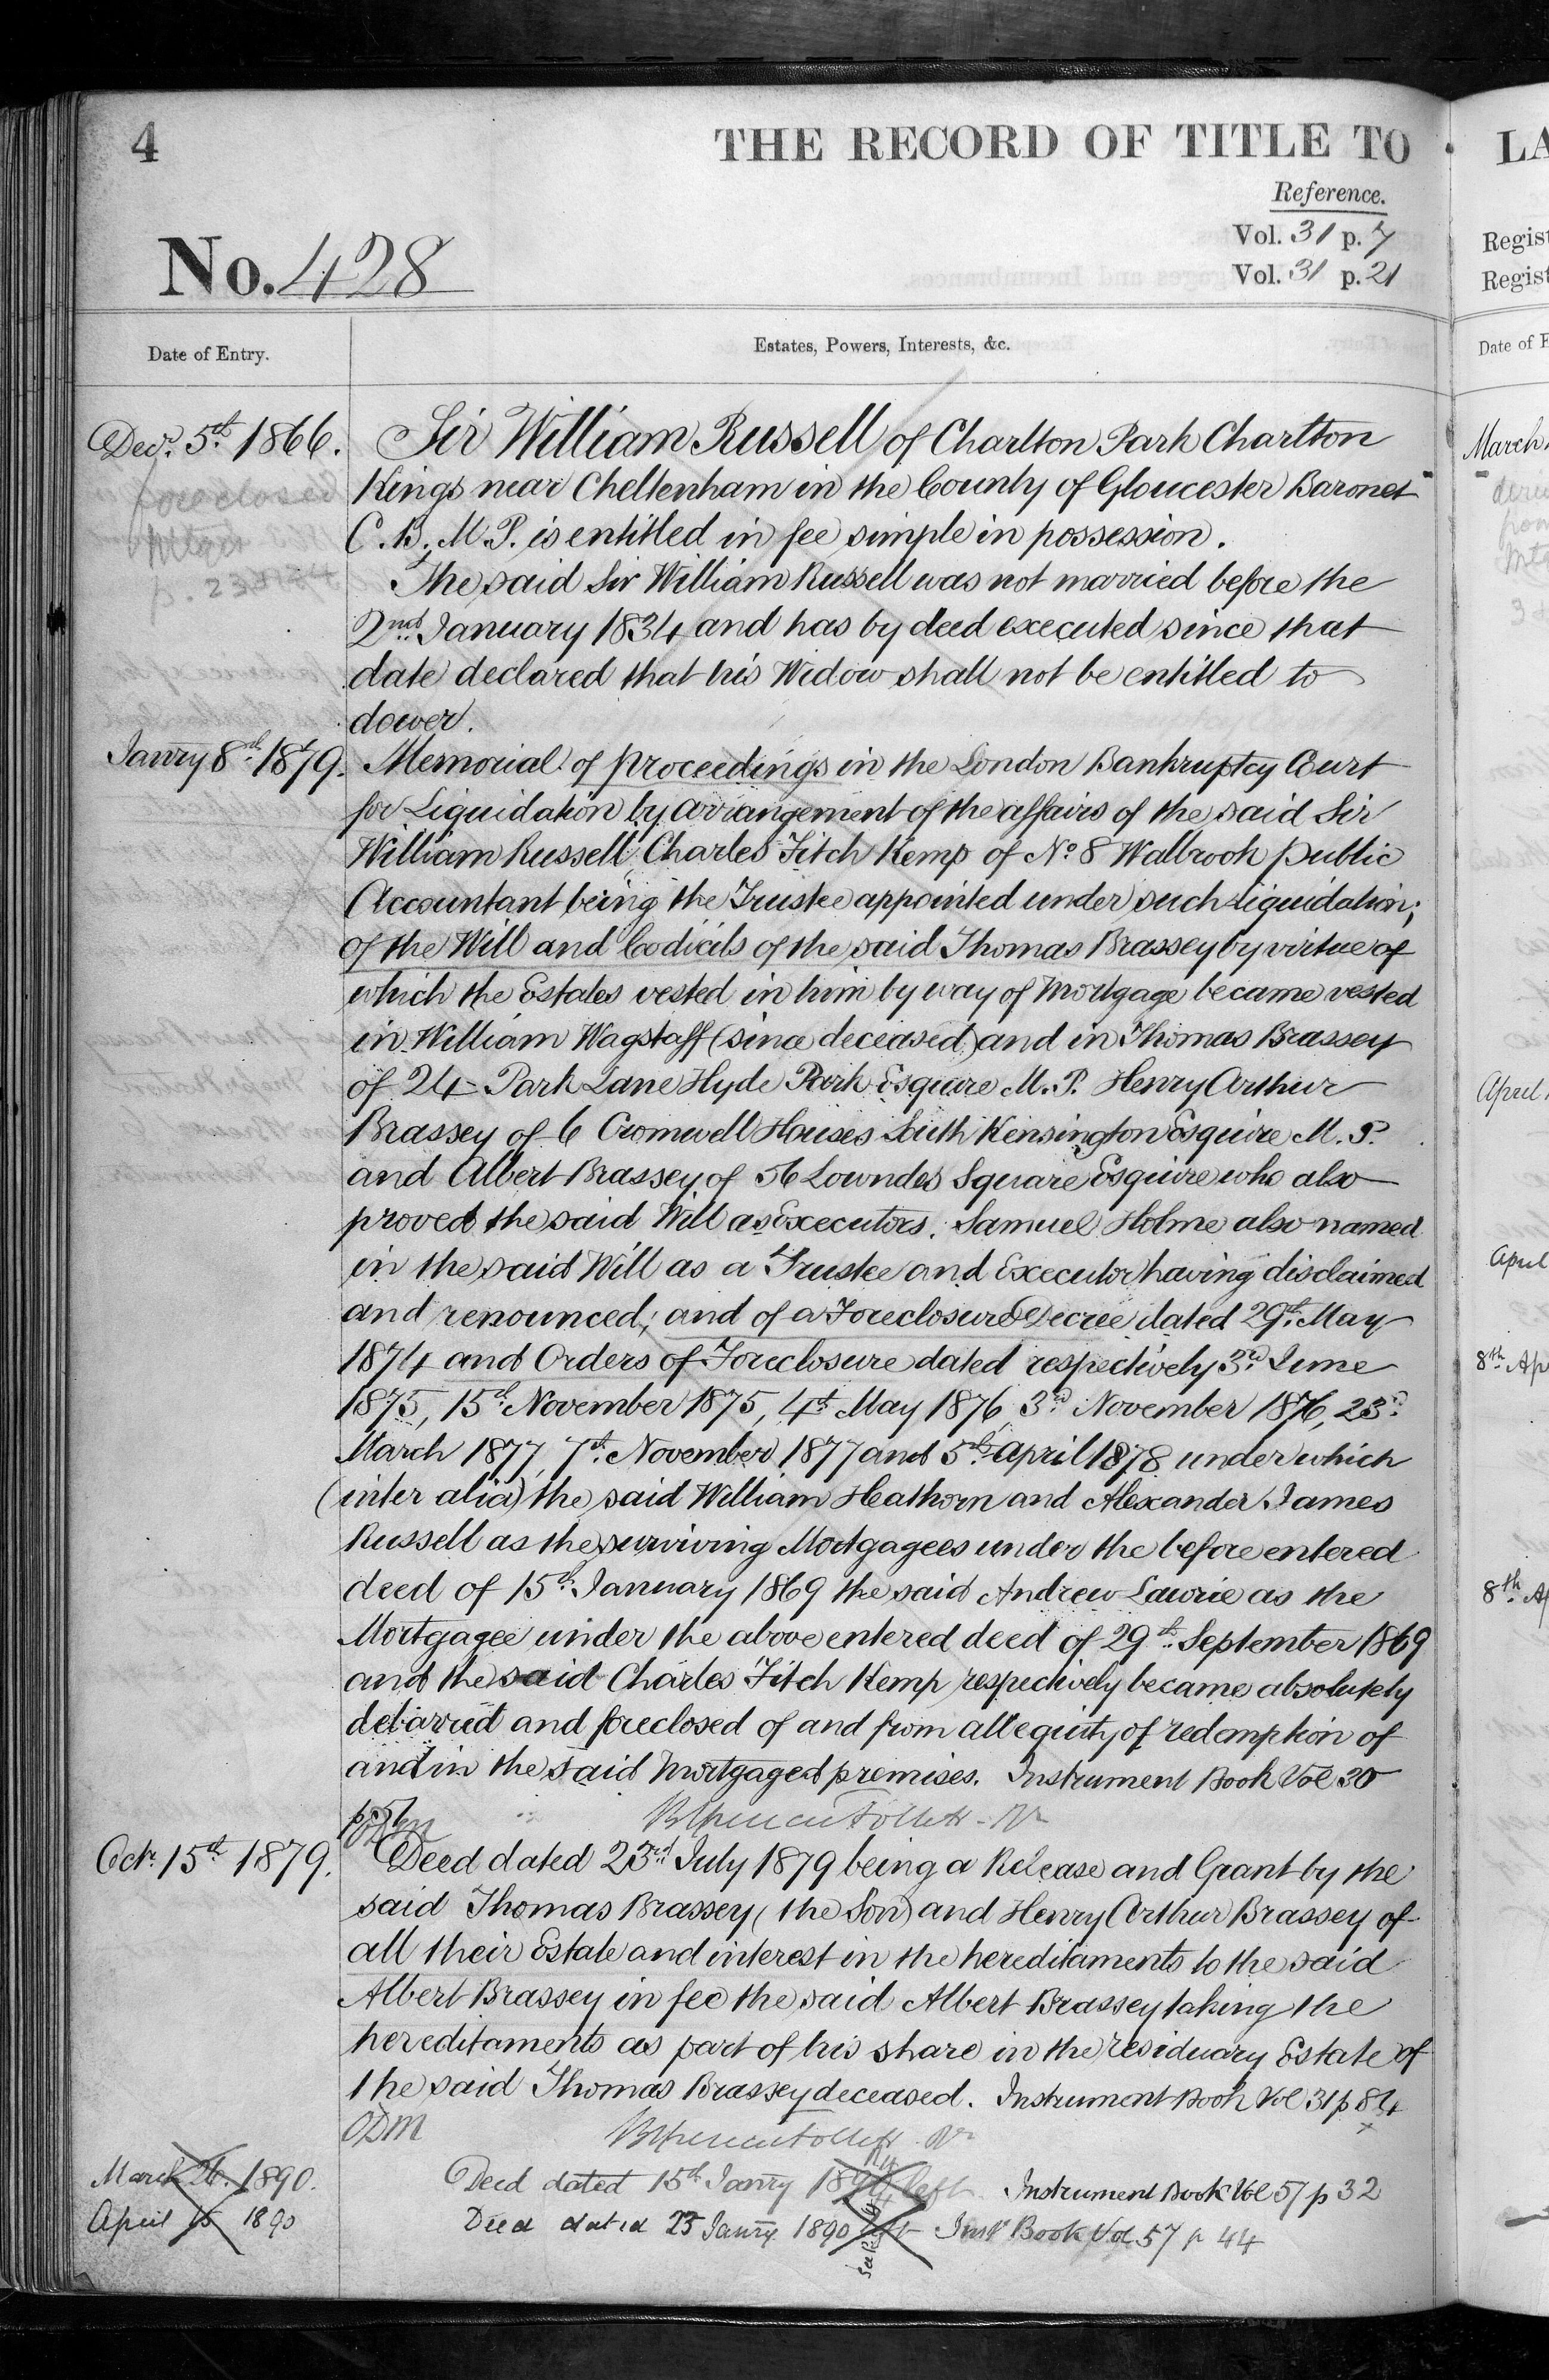 4
THE RECORD OF TITLE TO
Reference.
Vol. 31 p. 7
Vol. 31 p. 21
No. 428
Date of Entry.
Estates, Powers, Interests, &c.
Decr. 5th 1866.
foreclosed
Sir William Russell of Charlton Park Charlton
Kings near Cheltenham in the County of Gloucester Baronet
C. B., M. P. is entitled in fee simple in possession.
The said Sir William Russell was not married before the
2nd January 1834 and has by deed executed since that
date declared that his Widow shall not be entitled to
dower.
Janry 8th 1879.
Memorial of proceedings in the London Bankruptcy Court
for Liquidation by arrangement of the affairs of the said Sir
William Russell, Charles Fitch Kemp of No. 8 Walbrook public
Accountant being the Trustee appointed under such liquidation;
of the Will and Codicils of the said Thomas Brassey by virtue of
which the Estates vested in him by way of Mortgage became vested
in William Wagstaff (since deceased) and in Thomas Brassey
of 24 Park Lane Hyde Park Esquire M. P. Henry Arthur
Brassey of 6 Cromwell Houses South Kensington Esquire M. P.
and Albert Brassey of 56 Lowndes Square Esquire who also
proved the said Will as Executors. Samuel Holme also named
in the said Will as a Trustee and Executor having disclaimed
and renounced; and of a Foreclosure Decree dated 29th May
1874 and Orders of Foreclosure dated respectively 3rd June
1875, 15th November 1875, 4th May 1876, 3rd November 1876, 23rd
March 1877, 7th November 1877 and 5th April 1878 under which
(inter alia) the said William Heathorn and Alexander James
Russell as the surviving Mortgagees under the before entered
deed of 15th January 1869 the said Andrew Lawrie as the
Mortgagee under the above entered deed of 29th September 1869
and the said Charles Fitch Kemp respectively became absolutely
debarred and foreclosed of and from all equity of redemption of
and in the said Mortgaged premises. Instrument Book Vol 30
Octr. 15th 1879.
Deed dated 23rd July 1879 being a Release and Grant by the
said Thomas Brassey (the Son) and Henry Arthur Brassey of
all their Estate and interest in the hereditaments to the said
Albert Brassey in fee the said Albert Brassey taking the
hereditaments as part of his share in the residuary Estate of
the said Thomas Brassey deceased. Instrument Book Vol 31 p 84
ODM
March 26. 1890.
Deed dated 15th Janry Instrument Book Vol 57 p 32
April 15 1890
Deed dated 23 Janry 1890 Inst Book Vol 57 p 44
LA
Regist
Regist
Date of E
March
April
April
8th Ap
8th Ap